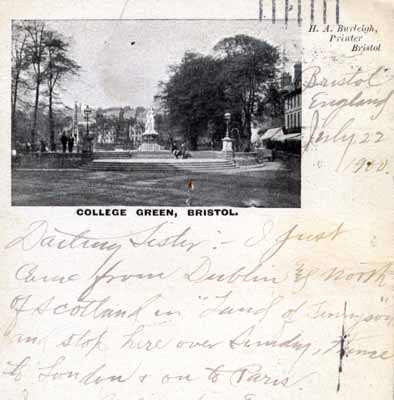 H. A. Burleigh,
Printer
Bristol
Bristol
England
July 22
1900.
COLLEGE GREEN, BRISTOL.
Darling Sister:- I just
came from Dublin & North
of Scotland in "Land of Tennyson
and stop here over Sunday, thence
to London & on to Paris.